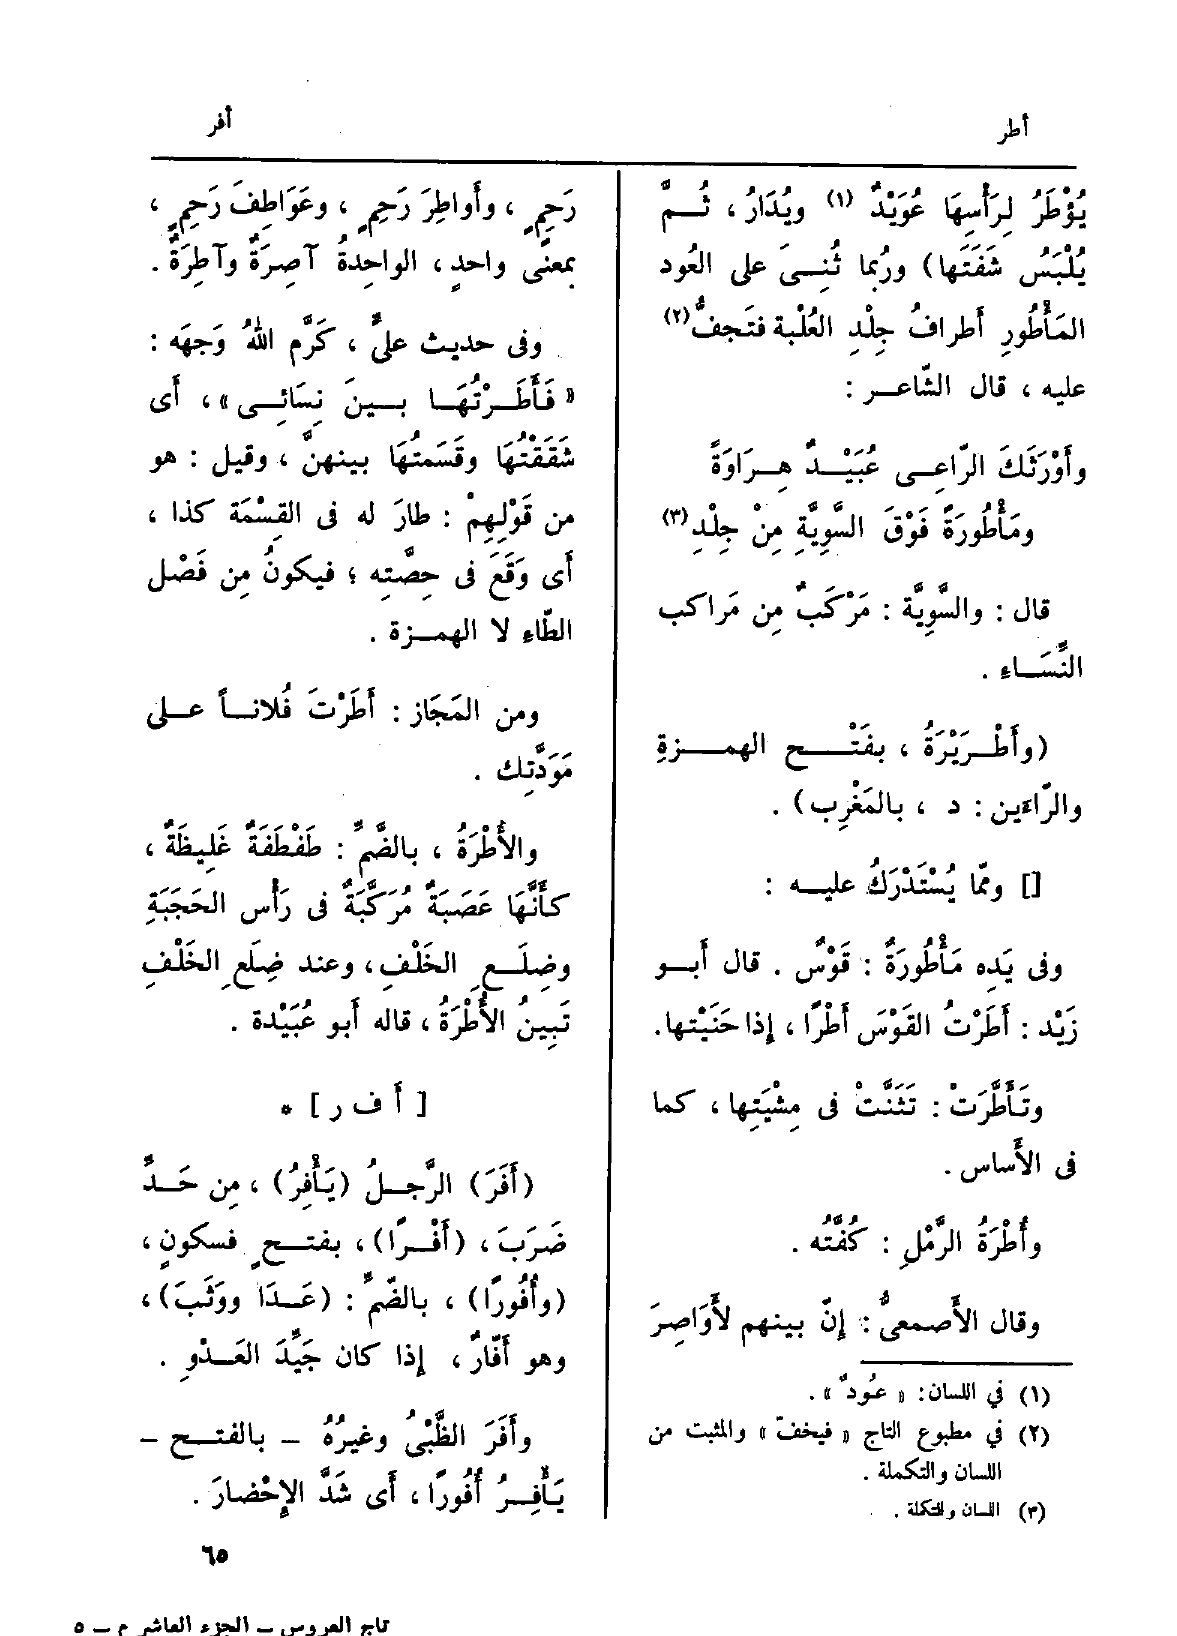 أطر
أفر
يُؤْطَرُ لِرَأْسِهَا عُوَيْدٌ (١) ويُدَارُ ، ثُـمَّ
يُلْبَسُ شَفَتَها) ورُبما ثُنِـىَ على العُود
المَأْطُورِ أَطرافُ جِلْدِ العُلْبة فتَجفُّ (٢)
عليه ، قال الشّاعـر :
وأَوْرَثَكَ الرّاعِـى عُبَيْـدٌ هِـرَاوَةً
ومَأْطُورَةً فَوْقَ السَّوِيَّةِ مِنْ جِلْدِ (٣)
قال : والسَّوِيَّة : مَرْكَبٌ مِن مَراكب
النِّسَـاءِ .
(وأَطْـرَيْرَةُ ، بفَتْـح الهمـزةِ
والرّاءَين : د ، بالمَغْرِب) .
[] ومّا يُسْتَدْرَكُ عليـه :
وفى يَدِه مَأْطُورَةٌ : قَوْسٌ . قال أَبـو
زَيْد : أَطَرْتُ القَوْسَ أَطْرًا ، إِذا حَنَيْتها.
وتَأَطَّرَتْ : تَثَنَّتْ فى مِشْيَتِها ، كما
فى الأَساس .
وأُطْرَةُ الرَّمْلِ : كُفَّتُه .
وقال الأَصمعىُّ : إِنّ بينهم لأَوَاصِرَ
(١) في اللسان: « عـُودٌ » .
(٢) في مطبوع التاج « فيخفّ » والمثبت من
اللسان والتكملة .
(٣) اللسان والتكملة .
رَحِمٍ ، وأَواطِرَ رَحِمٍ ، وعَوَاطِفَ رَحِمٍ ،
بمعنًى واحدٍ ، الواحِدةُ آصِرَةٌ وآطِرَةٌ .
وفى حديث علىٍّ ، كَرَّم اللهُ وَجهَه :
« فَأَطَـرْتُهَـا بـينَ نِسَائِـى » ، أَى
شَقَقْتُهَا وقَسَمتُهَا بينهنَّ ، وقيل : هو
من قَوْلِهِمْ : طارَ له فى القِسْمَة كذا ،
أَى وَقَعَ فى حِصَّتِه ؛ فيكونُ مِن فَصْل
الطّاءِ لا الهمـزة .
ومن المَجَاز : أَطَرْتَ فُلانـاً عـلى
مَوَدَّتِك .
والأُطْرَةُ ، بالضَّمِّ : طَفْطَفَةٌ غَلِيظَةٌ ،
كأَنَّهَا عَصَبَةٌ مُرَكَّبَةٌ فى رَأْس الحَجَبَةِ
وضِلَـعِ الخَلْفِ ، وعند ضِلَعِ الخَلْفِ
تَبِينُ الأُطْرَةُ ، قاله أَبو عُبَيْدة .
[ أ ف ر ] *
(أَفَرَ) الرَّجـلُ (يَأْفِرُ) ، مِن حَـدِّ
ضَرَبَ ، (أَفْـرًا) ، بفتـحٍ فسكونٍ ،
(وأُفُورًا) ، بالضّمِّ : (عَـدَا ووَثَبَ) ،
وهو أَفّارٌ ، إِذا كان جَيِّدَ العَـدْوِ .
وأَفَرَ الظَّبْىُ وغيرُهُ – بالفتـح –
يَأْفِـرُ أُفُورًا ، أَى شَدَّ الإِحْضارَ .
٦٥
تاج العروس – الجزء العاشر م – ٥